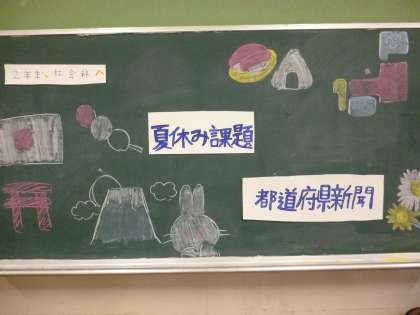 2年生 社会科
夏休み課題
都道府県新聞